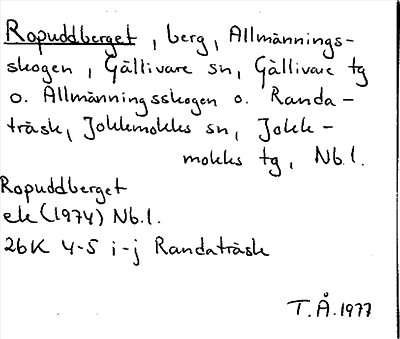 Ropuddberget, berg, Allmännings-
skogen, Gällivare sn, Gällivare tg
o. Allmänningsskogen o. Randa-
träsk, Jokkmokks sn, Jokk-
mokks tg, Nb.l.
Ropuddberget
ek (1974) Nb.l.
26K 4-5 i-j Randaträsk
T.Å. 1977